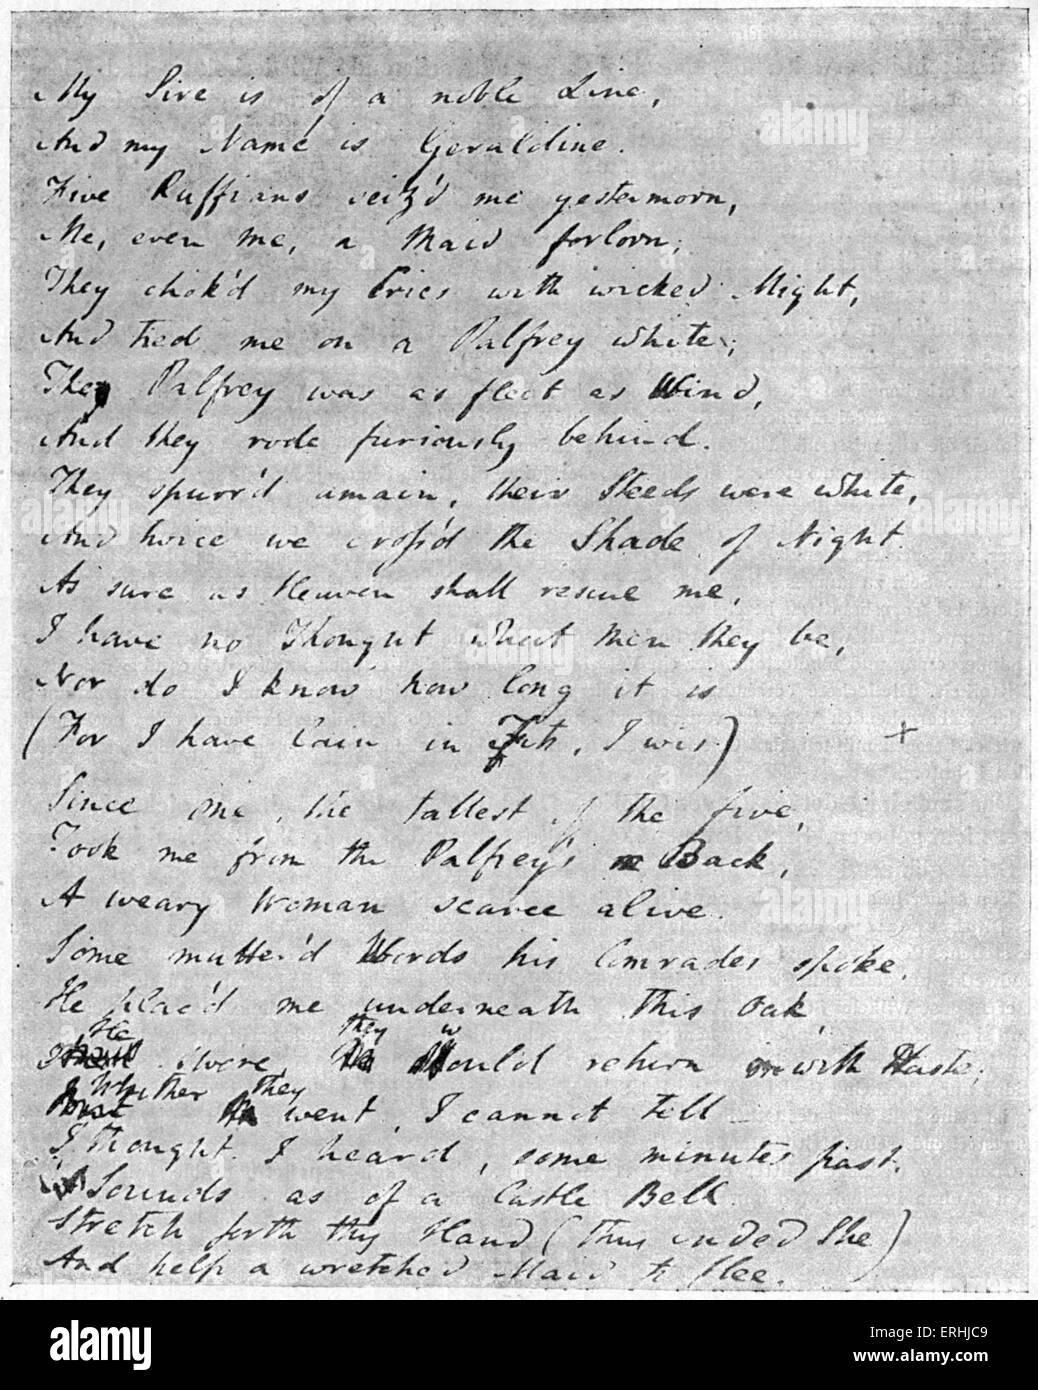 My Sire is of a noble Line,
And my Name is Geraldine.
Five Ruffians seiz'd me yestermorn,
Me, even me, a Maid forlorn;
They chok'd my Cries with wicked Might,
And tied me on a Palfrey white;
The Palfrey was as fleet as Wind,
And they rode furiously behind.
They spurr'd amain, their Steeds were white,
And twice we cross'd the Shade of Night.
As sure as Heaven shall rescue me,
I have no Thought what Men they be,
Nor do I know how long it is
(For I have lain in Fits, I wis) +
Since one, the tallest of the five,
Took me from the Palfrey's Back,
A weary Woman scarce alive.
Some mutter'd Words his Comrades spoke,
He plac'd me underneath this Oak,
He swore, they would return with Haste;
Whither they went, I cannot tell—
I thought I heard, some minutes past,
Sounds as of a Castle Bell.
Stretch forth thy Hand (thus ended She)
And help a wretched Maid to flee.
a alamy
alamy
Image ID: ERHJC9
www.alamy.com